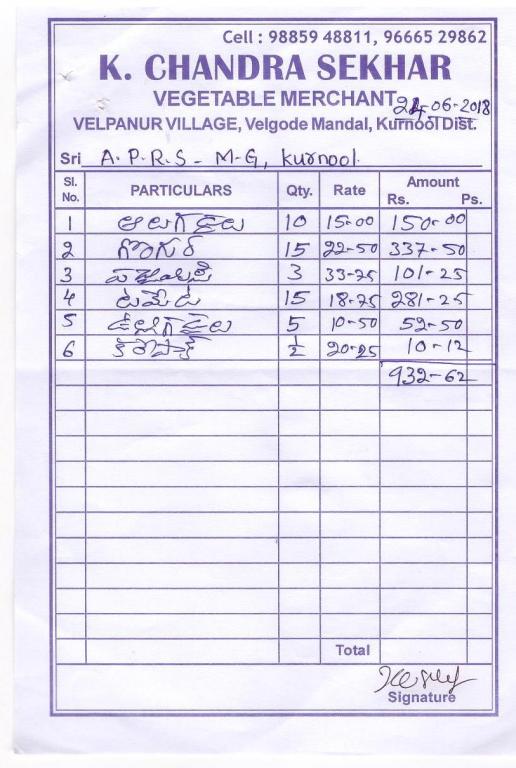 Cell : 98859 48811, 96665 29862
K. CHANDRA SEKHAR
VEGETABLE MERCHANT
24-06-2018
VELPANUR VILLAGE, Velgode Mandal, Kurnool Dist.
Sri A.P.R.S - M-G, Kurnool.
Sl. No. PARTICULARS Qty. Rate Amount
Rs. Ps.
1 ఆలుగడ్డలు 10 15-00 150-00
2 గోంగూర 15 22-50 337-50
3 3 33-75 101-25
4 టమేట 15 18-75 281-25
5 ఉల్లిగడ్డలు 5 10-50 52-50
6 కరేపాక్ ½ 20-25 10-12
932-62
Total
Signature